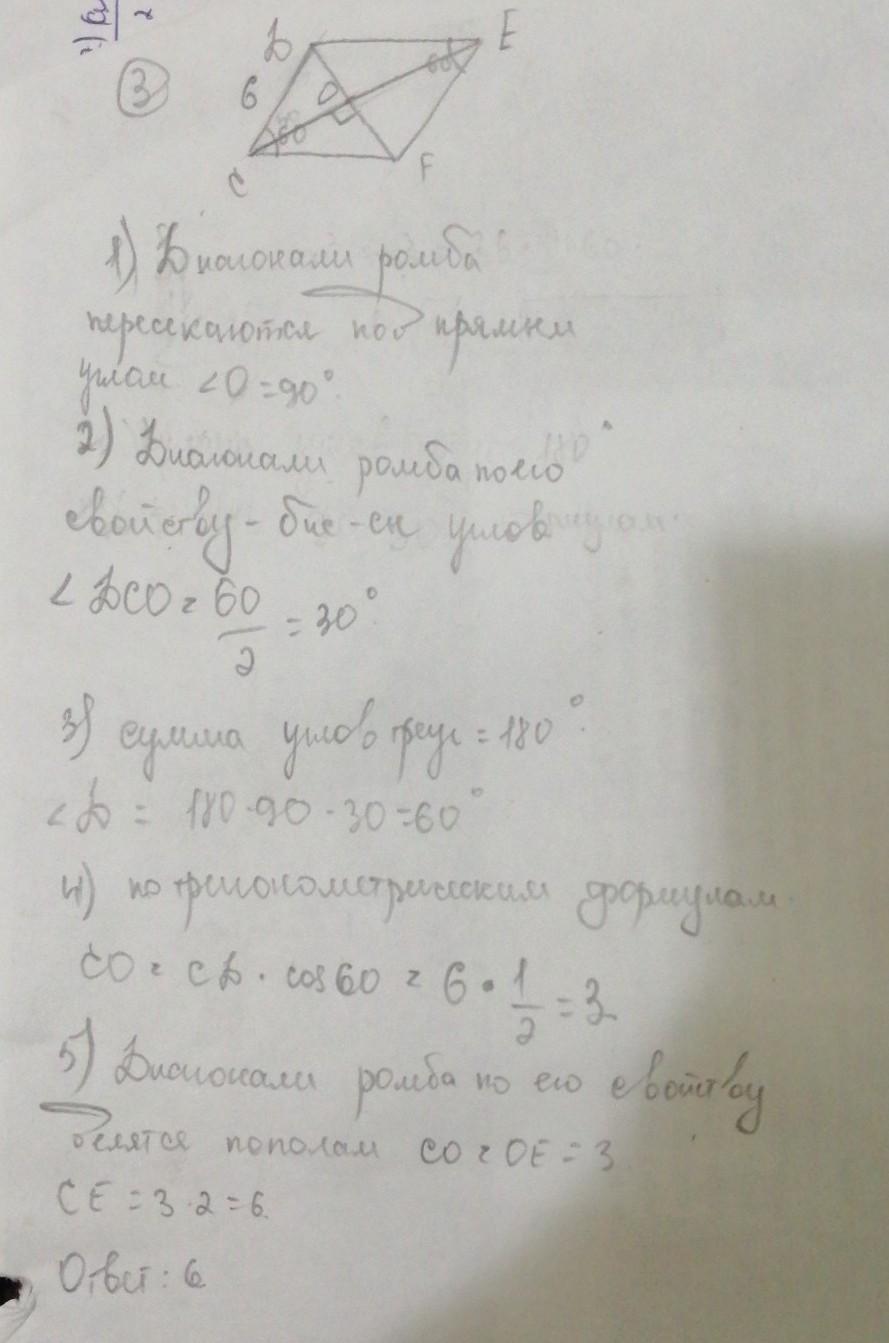 D E
③ 6 O 60
60
C F
1) Диагонали ромба
пересекаются под прямым
углом <O=90°.
2) Диагонали ромба по его
свойству - бис-сы углов
<DCO = 60/2 = 30°
3) сумма углов треуг = 180°.
<D = 180-90-30=60°
4) по тригонометрическим формулам
CO = CD · cos60 = 6 · 1/2 = 3
5) Диагонали ромба по его свойству
делятся пополам CO = OE = 3
CE = 3·2=6
Ответ: 6